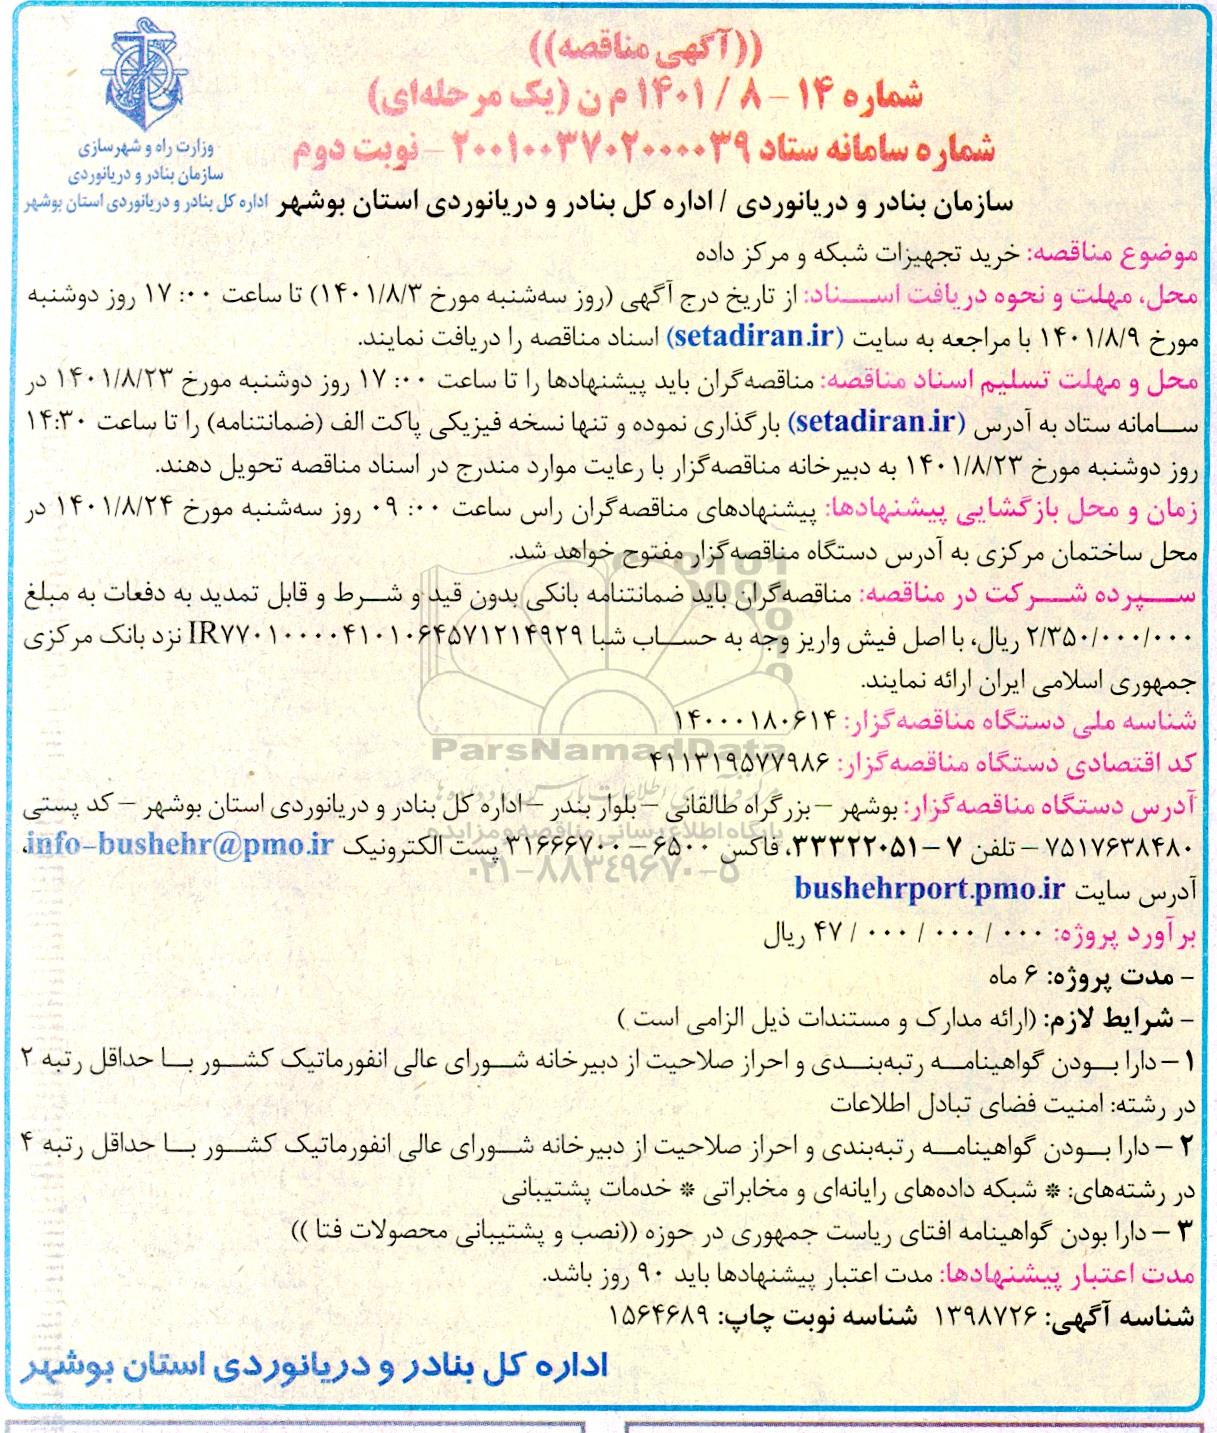 ((آگهی مناقصه))
شماره ۱۴ – ۸ / ۱۴۰۱ م ن (یک مرحله‌ای)
شماره سامانه ستاد ۲۰۰۱۰۰۳۷۰۲۰۰۰۰۳۹ – نوبت دوم
وزارت راه و شهرسازی
سازمان بنادر و دریانوردی
اداره کل بنادر و دریانوردی استان بوشهر
سازمان بنادر و دریانوردی / اداره کل بنادر و دریانوردی استان بوشهر
موضوع مناقصه: خرید تجهیزات شبکه و مرکز داده
محل، مهلت و نحوه دریافت اسناد: از تاریخ درج آگهی (روز سه‌شنبه مورخ ۱۴۰۱/۸/۳) تا ساعت ۰۰: ۱۷ روز دوشنبه
مورخ ۱۴۰۱/۸/۹ با مراجعه به سایت (setadiran.ir) اسناد مناقصه را دریافت نمایند.
محل و مهلت تسلیم اسناد مناقصه: مناقصه‌گران باید پیشنهادها را تا ساعت ۰۰: ۱۷ روز دوشنبه مورخ ۱۴۰۱/۸/۲۳ در
سامانه ستاد به آدرس (setadiran.ir) بارگذاری نموده و تنها نسخه فیزیکی پاکت الف (ضمانتنامه) را تا ساعت ۱۴:۳۰
روز دوشنبه مورخ ۱۴۰۱/۸/۲۳ به دبیرخانه مناقصه‌گزار با رعایت موارد مندرج در اسناد مناقصه تحویل دهند.
زمان و محل بازگشایی پیشنهادها: پیشنهادهای مناقصه‌گران راس ساعت ۰۰: ۰۹ روز سه‌شنبه مورخ ۱۴۰۱/۸/۲۴ در
محل ساختمان مرکزی به آدرس دستگاه مناقصه‌گزار مفتوح خواهد شد.
سپرده شرکت در مناقصه: مناقصه‌گران باید ضمانتنامه بانکی بدون قید و شرط و قابل تمدید به دفعات به مبلغ
۲/۳۵۰/۰۰۰/۰۰۰ ریال، یا اصل فیش واریز وجه به حساب شبا IR۷۷۰۱۰۰۰۰۴۱۰۱۰۶۴۵۷۱۲۱۴۹۲۹ نزد بانک مرکزی
جمهوری اسلامی ایران ارائه نمایند.
شناسه ملی دستگاه مناقصه‌گزار: ۱۴۰۰۰۱۸۰۶۱۴
ParsNamadData
کد اقتصادی دستگاه مناقصه‌گزار: ۴۱۱۳۱۹۵۷۷۹۸۶
آدرس دستگاه مناقصه‌گزار: بوشهر – بزرگراه طالقانی – بلوار بندر – اداره کل بنادر و دریانوردی استان بوشهر – کد پستی
پایگاه اطلاع رسانی مناقصه و مزایده
۷۵۱۷۶۳۸۴۸۰ – تلفن ۷ – ۳۳۳۲۲۰۵۱، فاکس ۶۵۰۰ – ۳۱۶۶۶۷۰۰ پست الکترونیک info-bushehr@pmo.ir،
۰۲۱-۸۸۳۴۹۶۷۰-۵
آدرس سایت bushehrport.pmo.ir
برآورد پروژه: ۰۰۰ / ۰۰۰ / ۰۰۰ / ۴۷ ریال
– مدت پروژه: ۶ ماه
– شرایط لازم: (ارائه مدارک و مستندات ذیل الزامی است )
۱ – دارا بودن گواهینامه رتبه‌بندی و احراز صلاحیت از دبیرخانه شورای عالی انفورماتیک کشور با حداقل رتبه ۲
در رشته: امنیت فضای تبادل اطلاعات
۲ – دارا بودن گواهینامه رتبه‌بندی و احراز صلاحیت از دبیرخانه شورای عالی انفورماتیک کشور با حداقل رتبه ۴
در رشته‌های: * شبکه داده‌های رایانه‌ای و مخابراتی * خدمات پشتیبانی
۳ – دارا بودن گواهینامه افتای ریاست جمهوری در حوزه ((نصب و پشتیبانی محصولات فتا ))
مدت اعتبار پیشنهادها: مدت اعتبار پیشنهادها باید ۹۰ روز باشد.
شناسه آگهی: ۱۳۹۸۷۲۶ شناسه نوبت چاپ: ۱۵۶۴۶۸۹
اداره کل بنادر و دریانوردی استان بوشهر